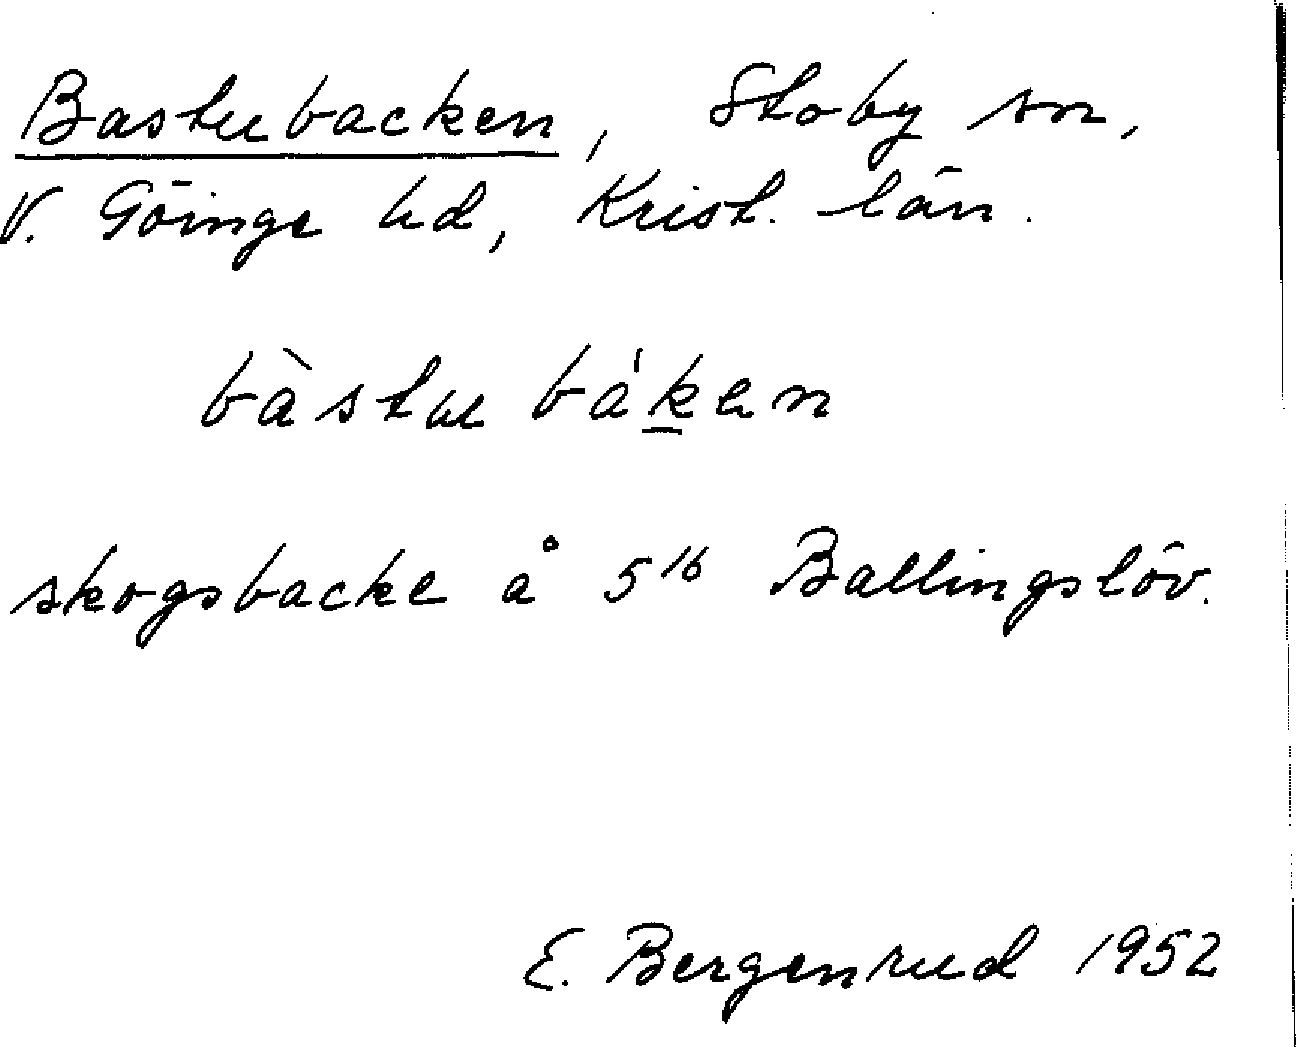 Bastubacken, Stoby sn,
V. Göinge hd, Krist. län.
bàstu báken
skogsbacke å 5¹⁶ Ballingslöv.
E. Bergenrud 1952